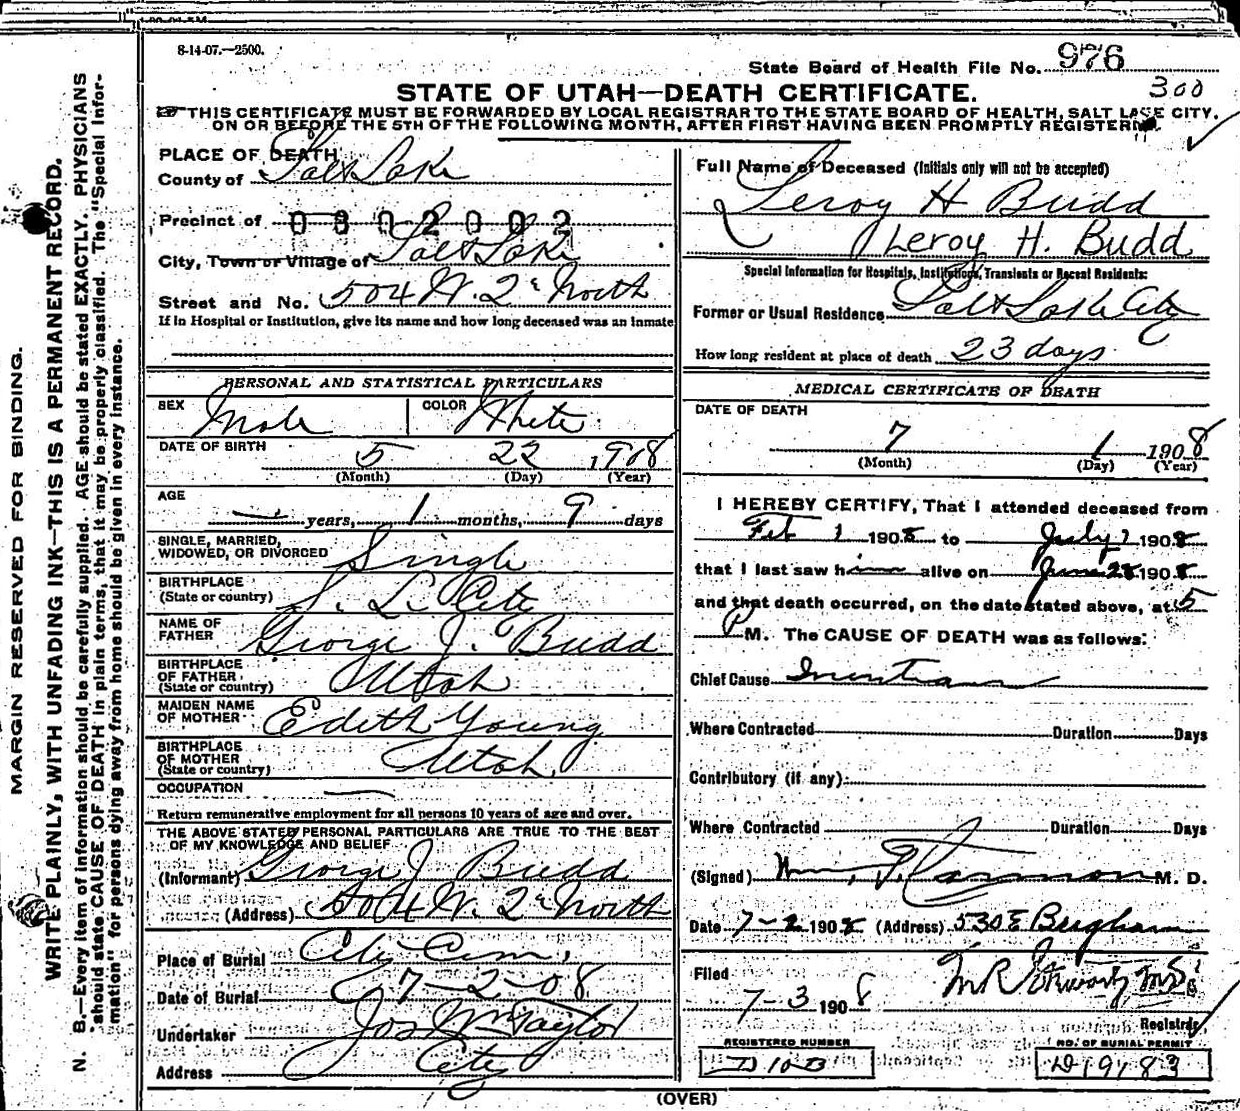 8-14-07.—2500.
State Board of Health File No. 976
300
STATE OF UTAH—DEATH CERTIFICATE.
THIS CERTIFICATE MUST BE FORWARDED BY LOCAL REGISTRAR TO THE STATE BOARD OF HEALTH, SALT LAKE CITY,
ON OR BEFORE THE 5TH OF THE FOLLOWING MONTH, AFTER FIRST HAVING BEEN PROMPTLY REGISTERED.
MARGIN RESERVED FOR BINDING.
WRITE PLAINLY, WITH UNFADING INK—THIS IS A PERMANENT RECORD.
N. B.—Every item of information should be carefully supplied. AGE should be stated EXACTLY. PHYSICIANS
should state CAUSE OF DEATH in plain terms, that it may be properly classified. The "Special Infor-
mation" for persons dying away from home should be given in every instance.
PLACE OF DEATH
County of Salt Lake
Precinct of 0302002
City, Town or Village of Salt Lake
Street and No. 504 W. 2d North
If in Hospital or Institution, give its name and how long deceased was an inmate
PERSONAL AND STATISTICAL PARTICULARS
SEX Male COLOR White
DATE OF BIRTH 5 22 1908
(Month) (Day) (Year)
AGE
— years, 1 months, 9 days
SINGLE, MARRIED,
WIDOWED, OR DIVORCED Single
BIRTHPLACE
(State or country) S. L. City
NAME OF
FATHER George J. Budd
BIRTHPLACE
OF FATHER
(State or country) Utah
MAIDEN NAME
OF MOTHER Edith Young
BIRTHPLACE
OF MOTHER
(State or country) Utah
OCCUPATION —
Return remunerative employment for all persons 10 years of age and over.
THE ABOVE STATED PERSONAL PARTICULARS ARE TRUE TO THE BEST
OF MY KNOWLEDGE AND BELIEF
(Informant) George J Budd
(Address) 504 W. 2d North
Place of Burial City Cem.
Date of Burial 7-2-08
Undertaker Jos Wm Taylor
Address City
Full Name of Deceased (Initials only will not be accepted)
Leroy H Budd
Leroy H. Budd
Special Information for Hospitals, Institutions, Transients or Recent Residents:
Former or Usual Residence Salt Lake City
How long resident at place of death 23 days
MEDICAL CERTIFICATE OF DEATH
DATE OF DEATH
7 1 1908
(Month) (Day) (Year)
I HEREBY CERTIFY, That I attended deceased from
Feb 1 1908 to July 1 1908
that I last saw him alive on June 28 1908
and that death occurred, on the date stated above, at 5
P M. The CAUSE OF DEATH was as follows:
Chief Cause
Where Contracted Duration Days
Contributory (if any):
Where Contracted Duration Days
(Signed) Wm. M. D.
Date 7-2 1908 (Address) 530 E Brigham
Filed
7-3 1908
Registrar
REGISTERED NUMBER
NO. OF BURIAL PERMIT
D 19183
(OVER)